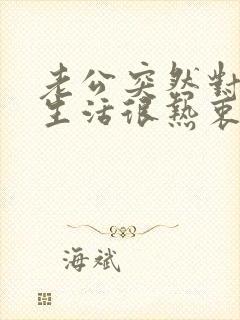 老公突然對
生活很熱衷
海斌